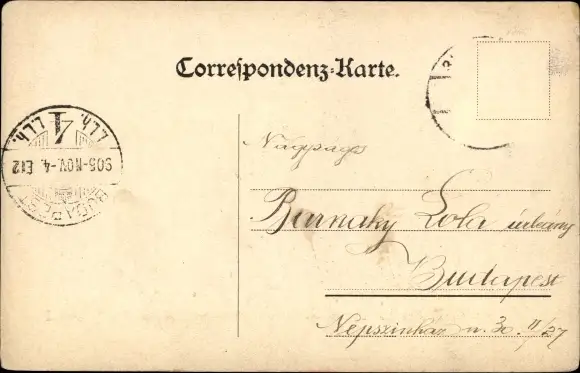 Correspondenz-Karte.
4
905-NOV.-4. E12
BUDAPEST
Nagysága
Barnaky Lola úrleány
Budapest
Népszinház u. 30. II/27